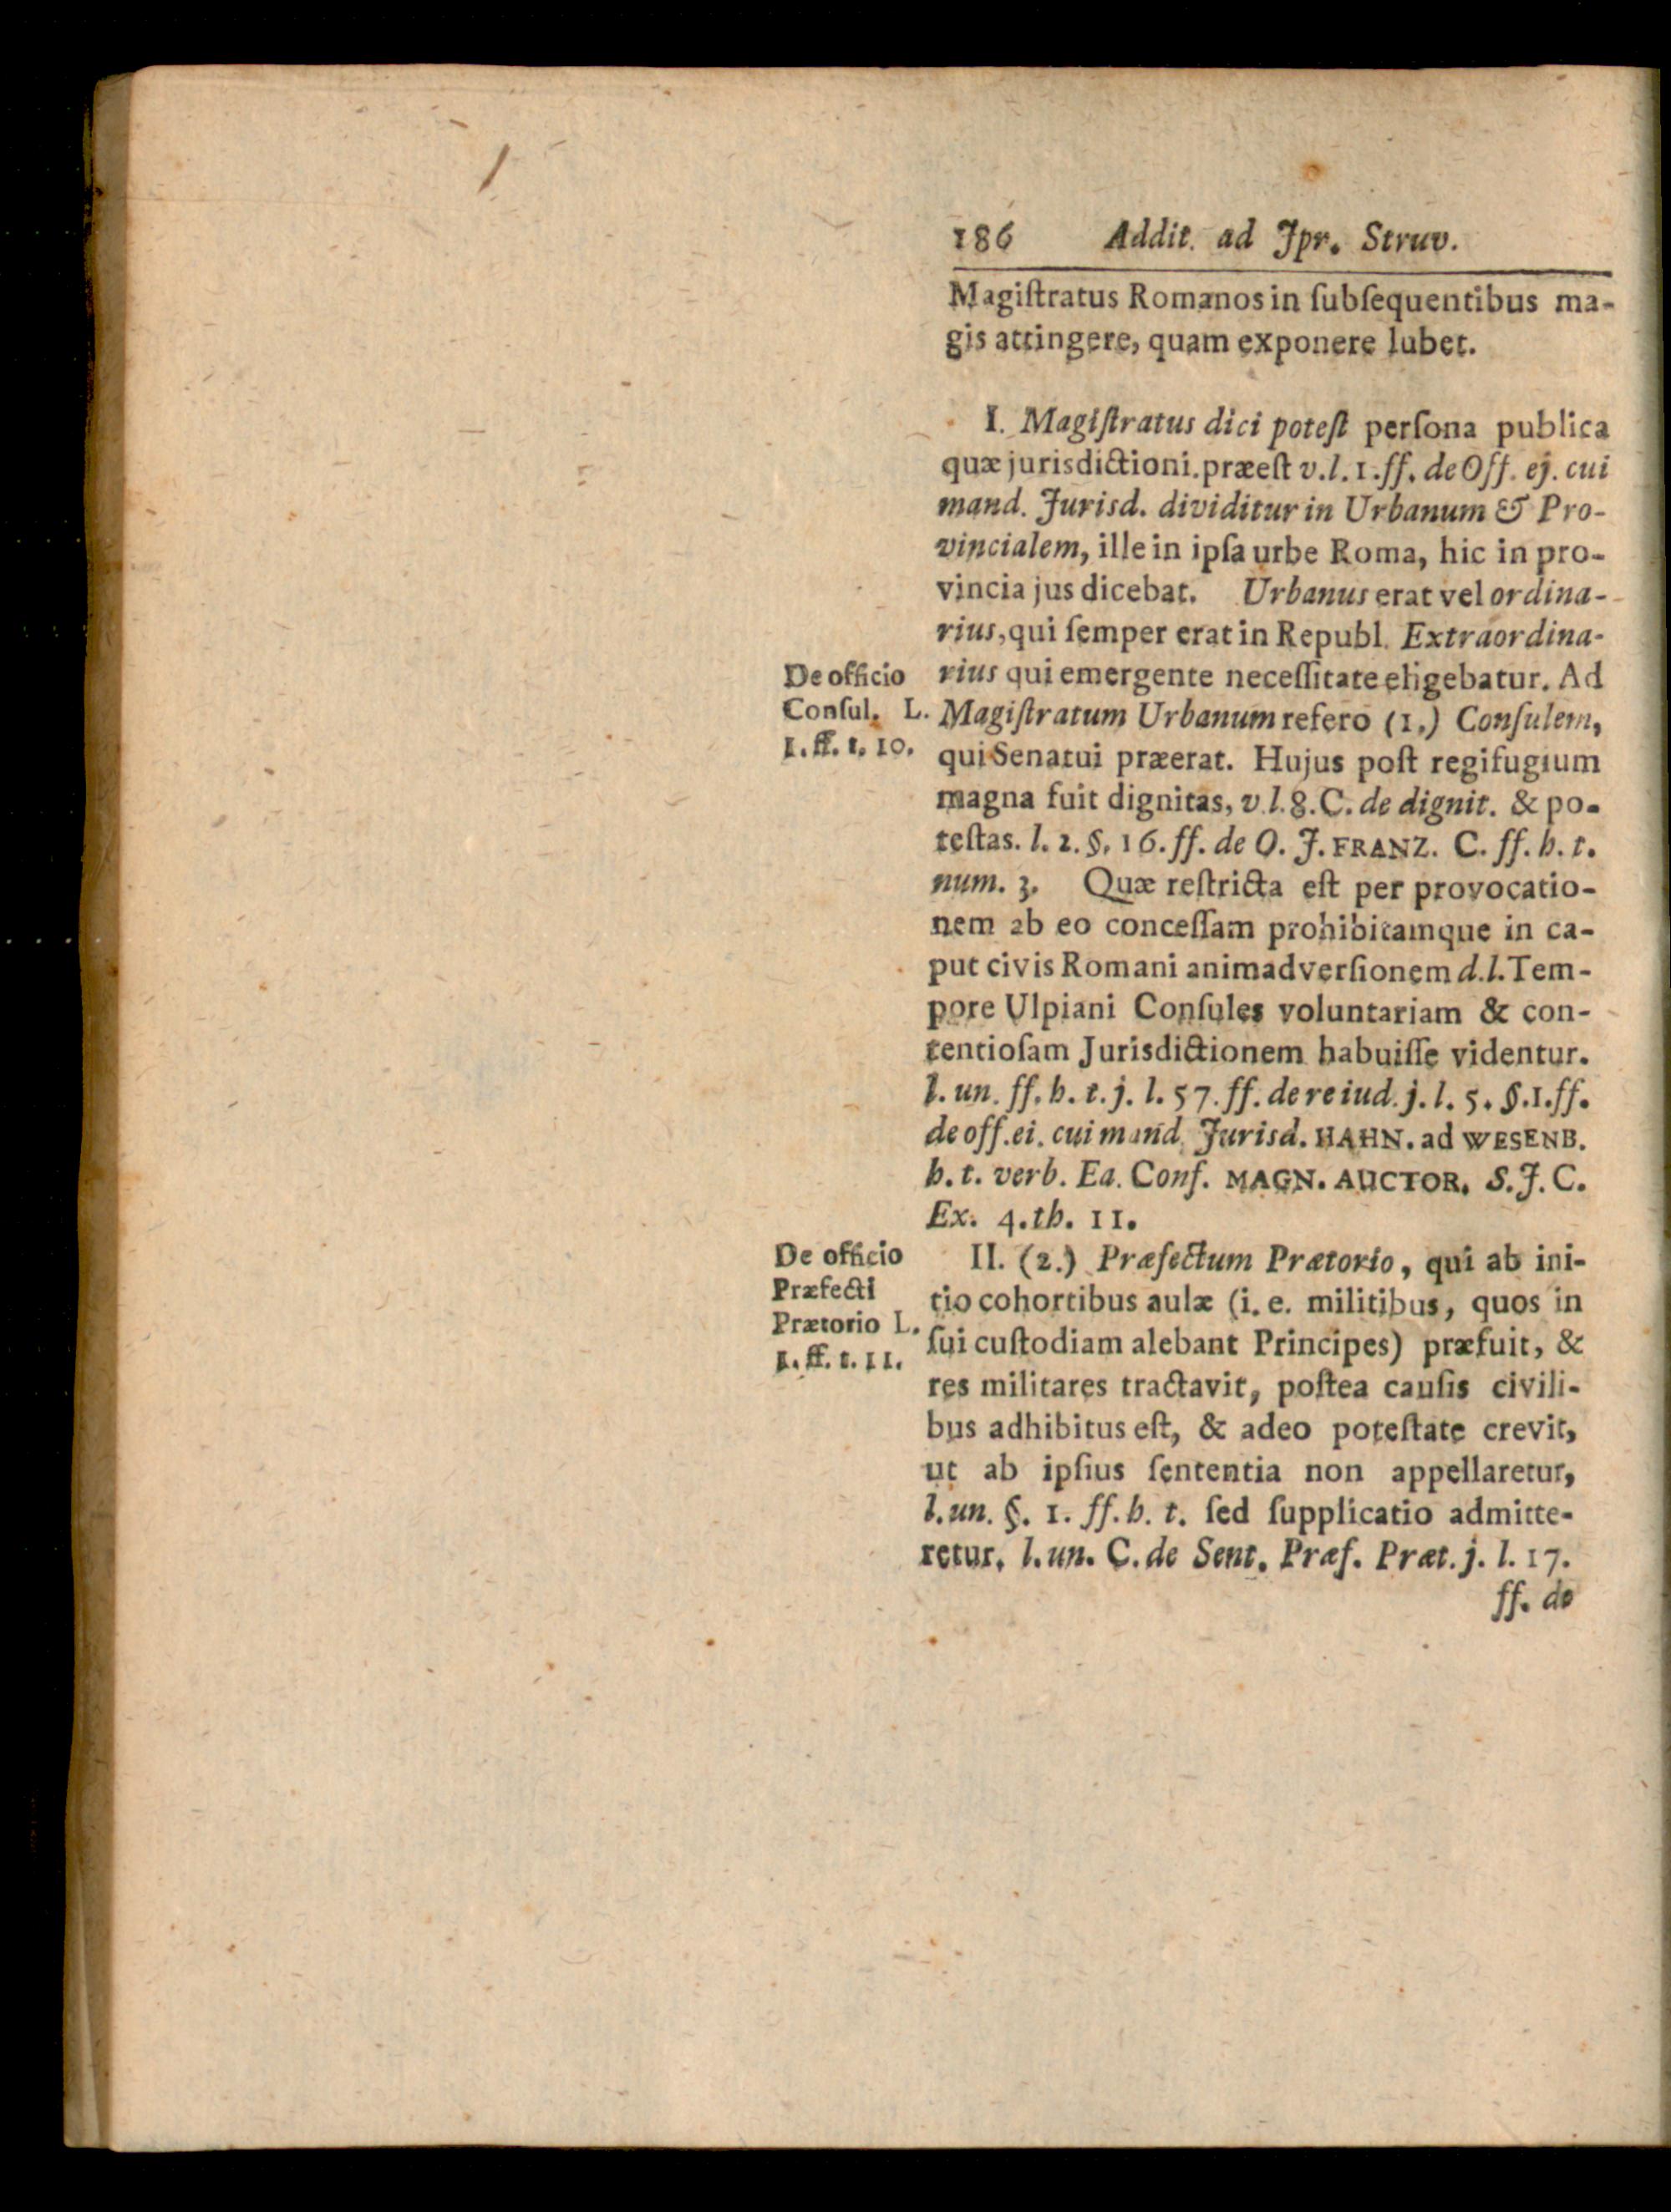 186 Addit. ad Jpr. Struv.
Magiſtratus Romanos in ſubſequentibus ma-
gis attingere, quam exponere lubet.
I. Magiſtratus dici poteſt perſona publica
quæ jurisdictioni. præeſt v. l. 1. ff. de Off. ej. cui
mand. Jurisd. dividitur in Urbanum & Pro-
vincialem, ille in ipſa urbe Roma, hic in pro-
vincia jus dicebat. Urbanus erat vel ordina-
rius, qui ſemper erat in Republ. Extraordina-
rius qui emergente neceſſitate eligebatur. Ad
Magiſtratum Urbanum refero (1.) Conſulem,
qui Senatui præerat. Hujus poſt regifugium
magna fuit dignitas, v. l. 8. C. de dignit. & po-
teſtas. l. 2. §. 16. ff. de O. J. FRANZ. C. ff. h. t.
num. 3. Quæ reſtricta eſt per provocatio-
nem ab eo conceſſam prohibitamque in ca-
put civis Romani animadverſionem d. l. Tem-
pore Ulpiani Conſules voluntariam & con-
tentioſam Jurisdictionem habuiſſe videntur.
l. un. ff. h. t. j. l. 57. ff. de re iud. j. l. 5. §. 1. ff.
de off. ei. cui mand. Jurisd. HAHN. ad WESENB.
h. t. verb. Ea. Conſ. MAGN. AUCTOR. S. J. C.
Ex. 4. th. 11.
De officio
Conſul. L.
1. ff. t. 10.
II. (2.) Præfectum Prætorio, qui ab ini-
tio cohortibus aulæ (i. e. militibus, quos in
ſui cuſtodiam alebant Principes) præfuit, &
res militares tractavit, poſtea cauſis civili-
bus adhibitus eſt, & adeo poteſtate crevit,
ut ab ipſius ſententia non appellaretur,
l. un. §. 1. ff. h. t. ſed ſupplicatio admitte-
retur. l. un. C. de Sent. Præf. Præt. j. l. 17.
De officio
Præfecti
Prætorio L.
1. ff. t. 11.
ff. de